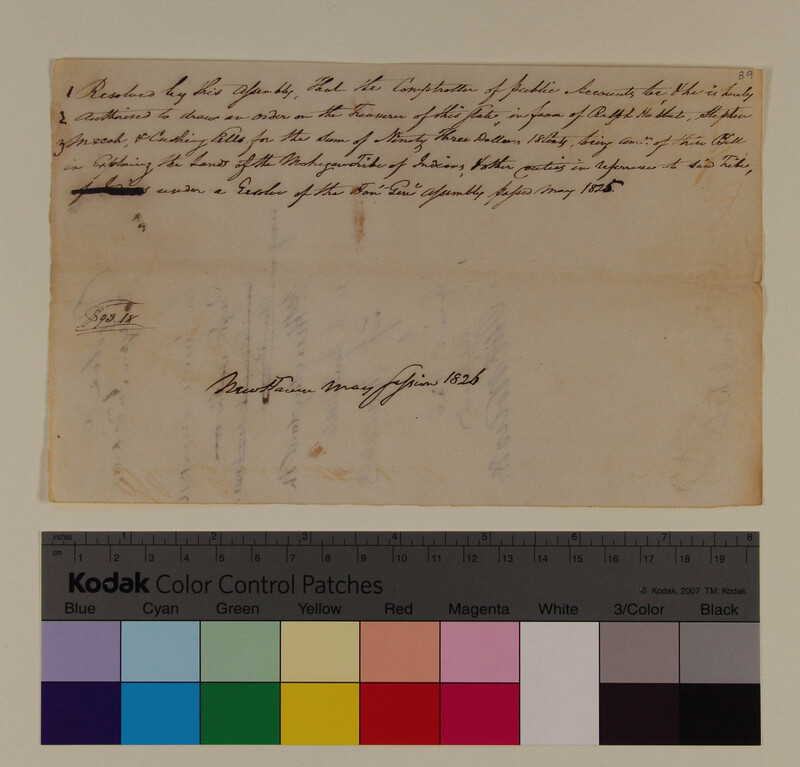 89
1 Resolved by this Assembly, That the Comptroller of public Accounts be, & he is hereby
2 Authorised to draw an order on the Treasurer of this State, in favor of Ralph Hubbard, Stephen
3 Meech, & Cushing Eells for the sum of Ninety Three Dollars 18 Cents, being amt. of their Bill
in Exploring the Lands of the Mohegan Tribe of Indians, & other duties in reference to said Tribe,
under a Resolve of the Honl. Genl. Assembly passed May 1825.
$93.18
New Haven May Session 1826
inches 1 2 3 4 5 6 7 8
cm 1 2 3 4 5 6 7 8 9 10 11 12 13 14 15 16 17 18 19
Kodak Color Control Patches
© Kodak, 2007 TM: Kodak
Blue Cyan Green Yellow Red Magenta White 3/Color Black